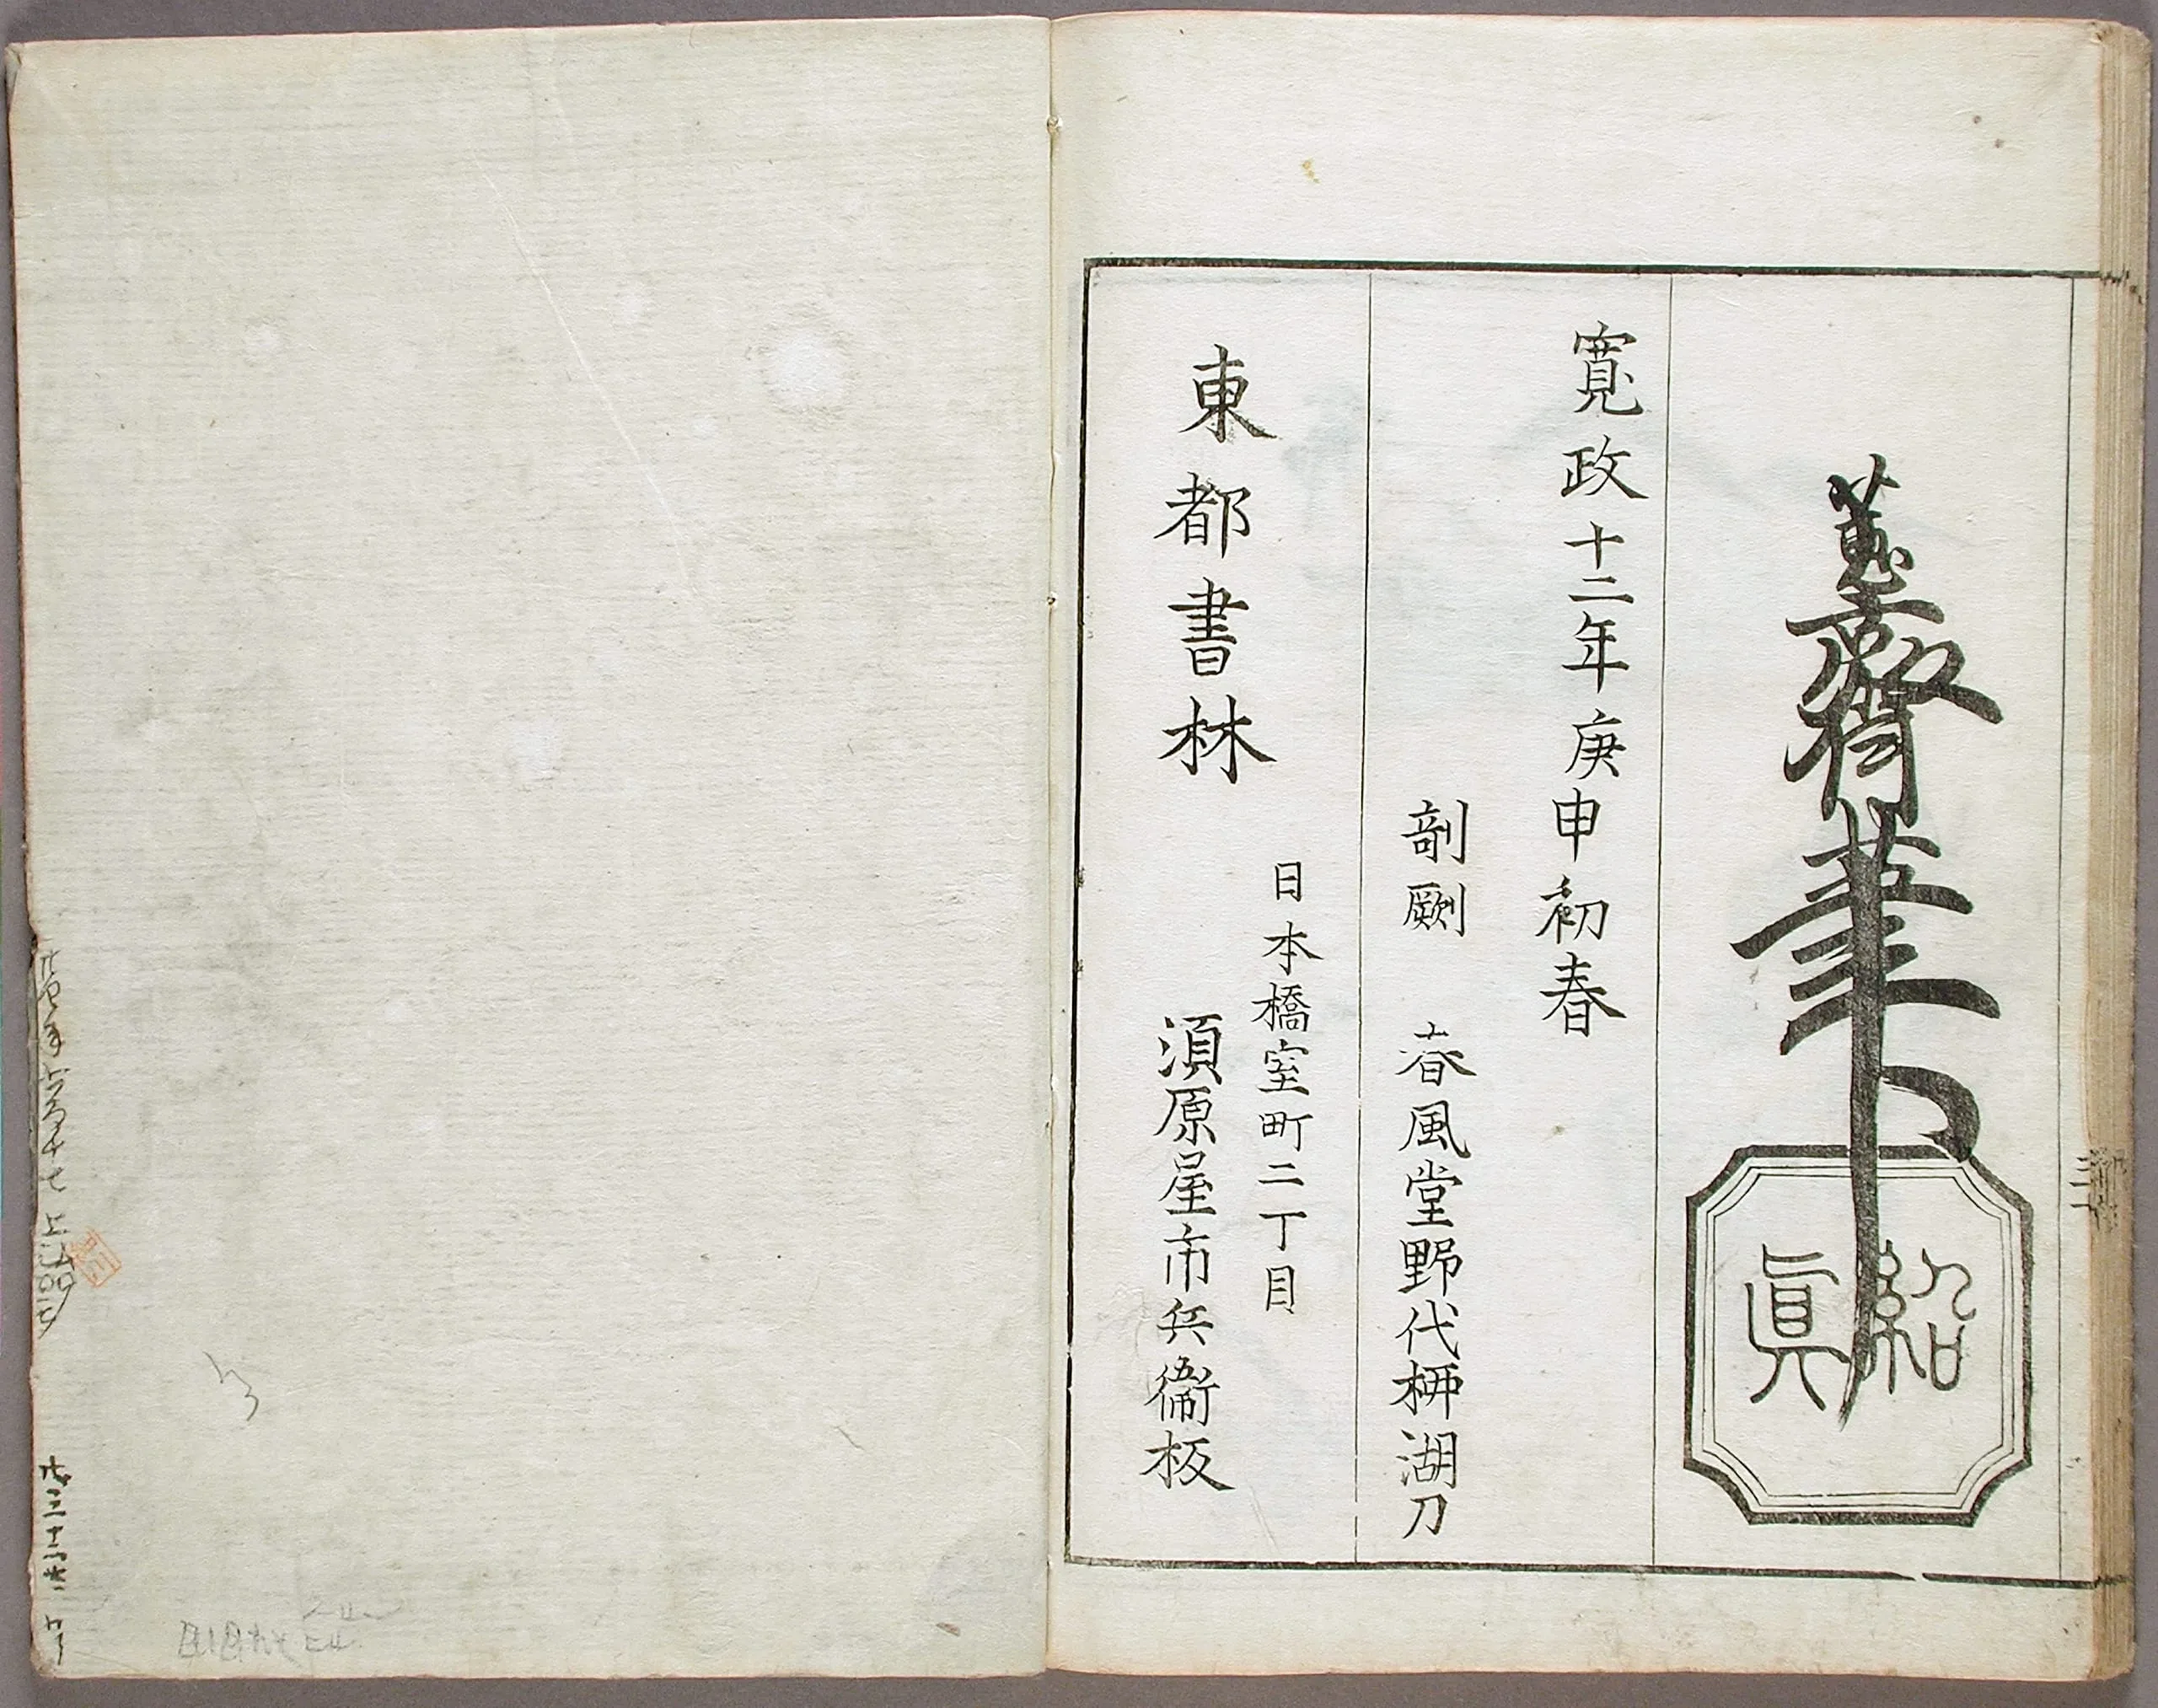 蕙斎筆
紹眞
寛政十二年庚申初春
剞劂 春風堂野代柳湖刀
東都書林
日本橋室町二丁目
須原屋市兵衛板